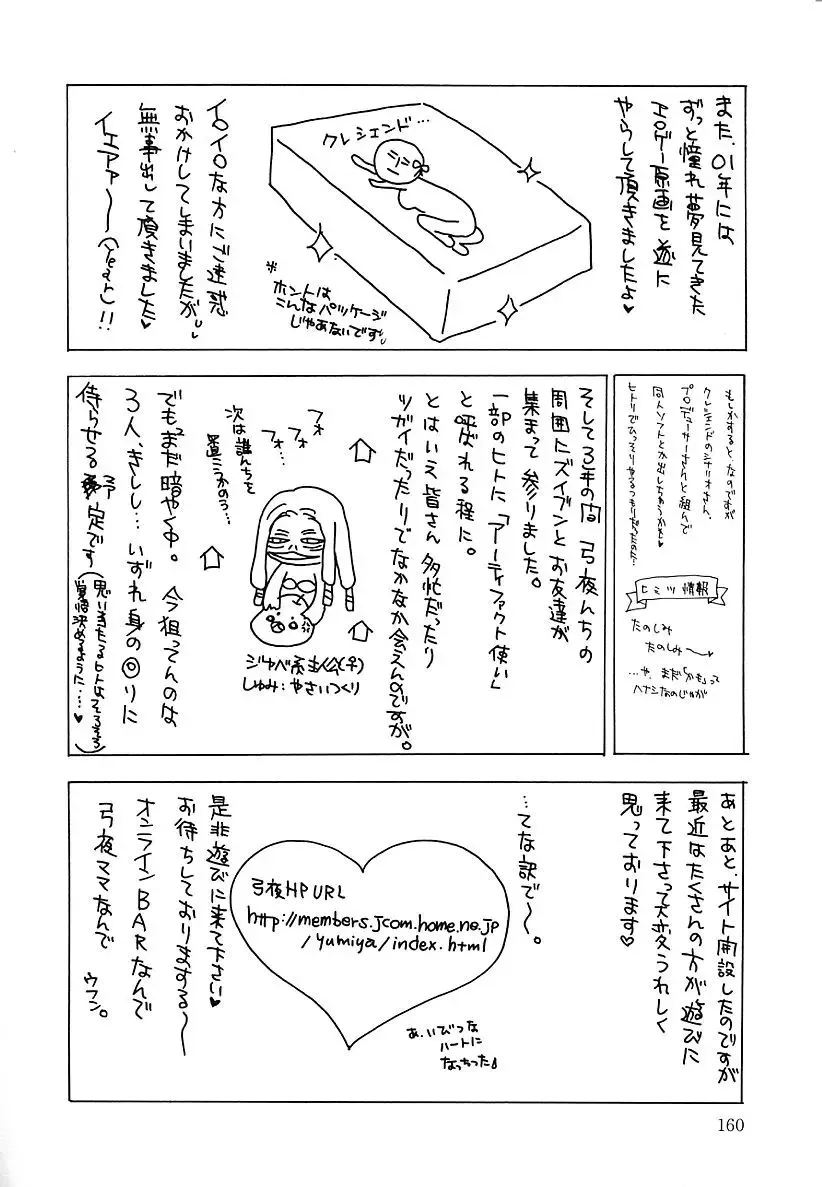 また、01年には
ずっと憧れ夢見てきた
エロゲー原画を遂に
やらして頂きましたよ♥
クレシェンド…
※
ホントは
こんなパッケージ
じゃあないです
イロイロな方にご迷惑
おかけしてしまいましたが
無事出して頂きました♥
イエアァ～～(Yeah)!!
もしかすると、なのですが
クレシェンドのシナリオさん、
プロデューサーさんと組んで
同人ソフトとか出しちゃうかも♥
ヒミツ情報
たのしみ
たのしみ～
…や、まだ「かも」って
ハナシなのじゃが
そして3年の間 弓夜んちの
周囲にズイブンとお友達が
集まって参りました。
一部のヒトに「アーティファクト使い」
と呼ばれる程に。
とはいえ皆さん多忙だったり
ツガイだったりでなかなか会えんのですが。
フォ
フォ…
フォ…
次は誰んちを
置こうかのう…
ジャベ系主人公(♀)
しゅみ：やさいつくり
でもまだ暗やく中。今狙ってんのは
3人、きしし…いずれ身の回りに
待らせる予定です(思い当たるヒトはそろそろ
覚悟決めるように…♥)
あとあと、サイト開設したのですが
最近はたくさんの方が遊びに
来て下さって大変うれしく
思っております♥
…てな訳で～。
弓夜HP URL
http://members.jcom.home.ne.jp
/yumiya/index.html
あ、いびつな
ハートに
なっちった♪
是非遊びに来て下さい♥
お待ちしておりまする～
オンラインBARなんで
弓夜ママなんで
ウフン。
160